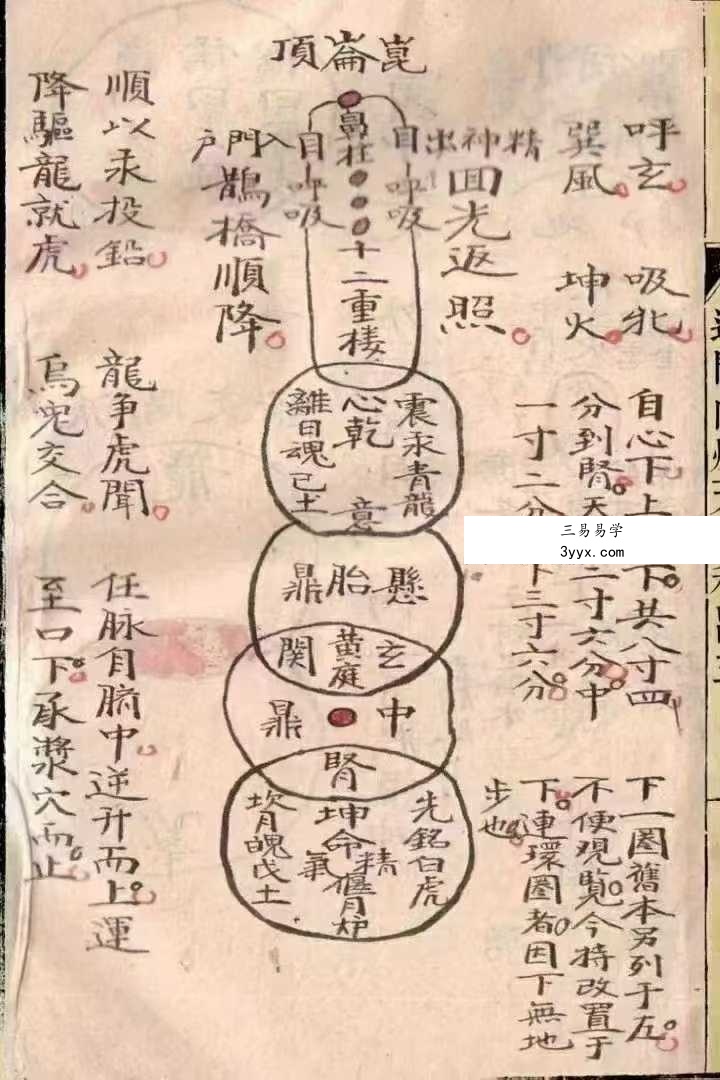 崑崙頂
呼玄。
巽風。
吸牝。
坤火。
自心下上
下。共八寸四
分到腎。天
二寸六分中。
一寸二分
下三寸六分。
下一圈舊本另列于左。
不便观覧。今持改置于
下。連環圈者。因下無地
步也。
精神出
自呼吸
囬光返照。
鼻柱
十二重楼
自呼吸
入門户
鵲橋順降。
震汞青龍
心乾意
離日魂己土
懸胎鼎
玄黃庭関
中鼎
腎
先銘白虎
坤命精氣偃月炉
坎月魄戊土
順以汞投鉛。
降驅龍就虎。
龍争虎聞。
烏兎交合。
任脉自臍中。逆升而上。運
至口下。承漿穴而止。
三易易学
3yyx.com